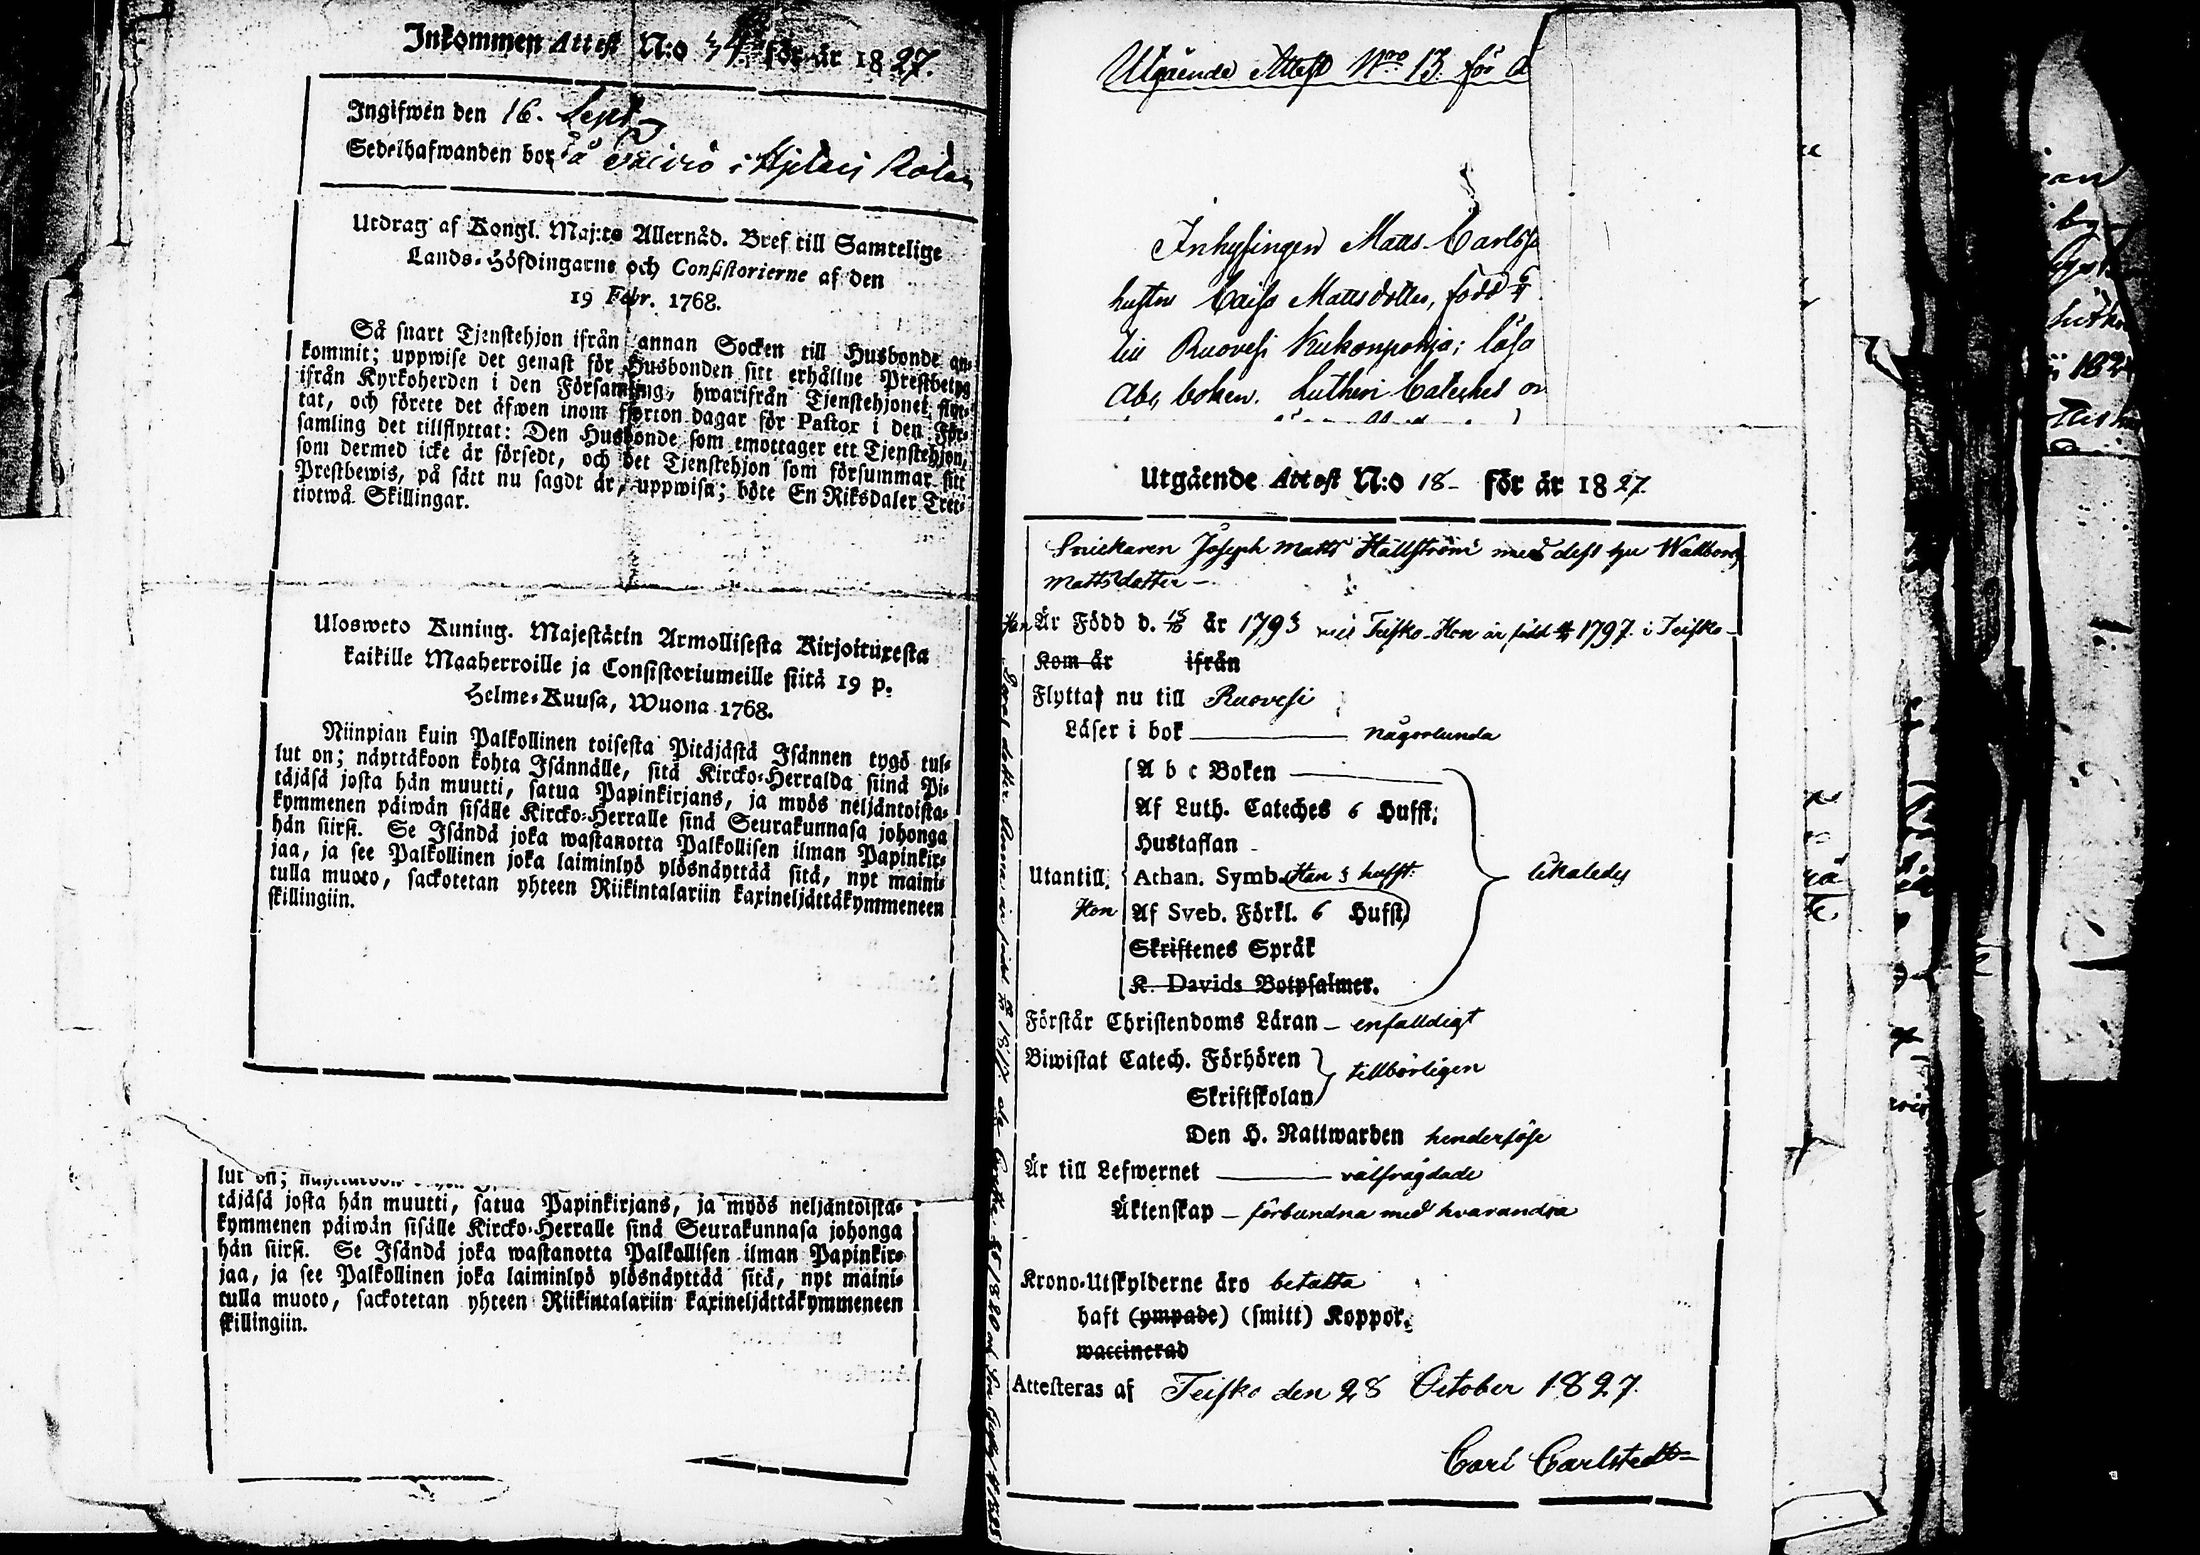 Inkommen Attest N:o 34 för år 1827.
Ingifwen den 16. Sept
Sedelhafwanden bor på i Rotan
Utdrag af Kongl. Maj:ts Allernåd. Bref till Samtelige
Lands-Höfdingarne och Consistorierne af den
19 Febr. 1768.
Så snart Tjenstehjon ifrån annan Socken till Husbonde an-
kommit; uppwise det genast för Husbonden sitt erhållne Prestbetyg
ifrån Kyrkoherden i den Församling, hwarifrån Tjenstehjonet flyt-
tat, och förete det äfwen inom fjorton dagar för Pastor i den För-
samling det tillflyttat: Den Husbonde som emottager ett Tjenstehjon,
som dermed icke är försedt, och det Tjenstehjon som försummar sitt
Prestbewis, på sätt nu sagdt är, uppwisa; böte En Riksdaler Tret-
tiotwå Skillingar.
Ulosweto Kuning. Majestätin Armollisesta Kirjoituxesta
kaikille Maaherroille ja Consistoriumeille siitä 19 p.
Helme-Kuusa, Wuona 1768.
Niinpian kuin Palkollinen toisesta Pitäjästä Isännen tygö tul-
lut on; näyttäkoon kohta Isännälle, sitä Kircko-Herralda siinä Pi-
täjäsä josta hän muutti, satua Papinkirjans, ja myös neljäntoista-
kymmenen päiwän sisälle Kircko-Herralle sinä Seurakunnasa johonga
hän siirsi. Se Isändä joka wastanotta Palkollisen ilman Papinkir-
jaa, ja see Palkollinen joka laiminlyö ylösnäyttää sitä, nyt maini-
tulla muoto, sackotetan yhteen Riikintalariin kaxineljättäkymmeneen
skillingiin.
lut on;
täjäsä josta hän muutti, satua Papinkirjans, ja myös neljäntoista-
kymmenen päiwän sisälle Kircko-Herralle sinä Seurakunnasa johonga
hän siirsi. Se Isändä joka wastanotta Palkollisen ilman Papinkir-
jaa, ja see Palkollinen joka laiminlyö ylösnäyttää sitä, nyt maini-
tulla muoto, sackotetan yhteen Riikintalariin kaxineljättäkymmeneen
skillingiin.
Utgående Attest Nro 13. för å
Inhysingen Matts Carls
hustru Caisa Mattsdotter, född
till Ruovesi Kukonpohja; läsa
Abc boken. Lutheri Cateches
Utgående Attest N:o 18- för år 1827.
Snickaren Joseph Matts Hällström med dess hu Wallborg
Mattsdotter -
Han Är Född d. år 1793 Teisko - Hon är född 1797. i Teisko -
Kom år ifrån
Flytta nu till Ruovesi
Läser i bok någorlunda
A b c Boken
Af Luth. Cateches 6 Hufst;
Hustaflan
Utantill. Athan. Symb. Han 3 hufst.
Hon Af Sveb. Förkl. 6 Hufst
likaledes
Skriftenes Språk
K. Davids Botpsalmer.
Förstår Christendoms Läran - enfalldigt
Biwistat Catech. Förhören
tillbörligen
Skriftskolan
Den H. Nattwarden hinderlöse
Är till Lefwernet välfrägdade
Äktenskap - förbundna med hvarandra
Krono-Utskylderne äro betalta
haft (ympade) (smitt) Koppor.
waccinerad
Attesteras af Teisko den 28 October 1827.
Carl Carlstedt